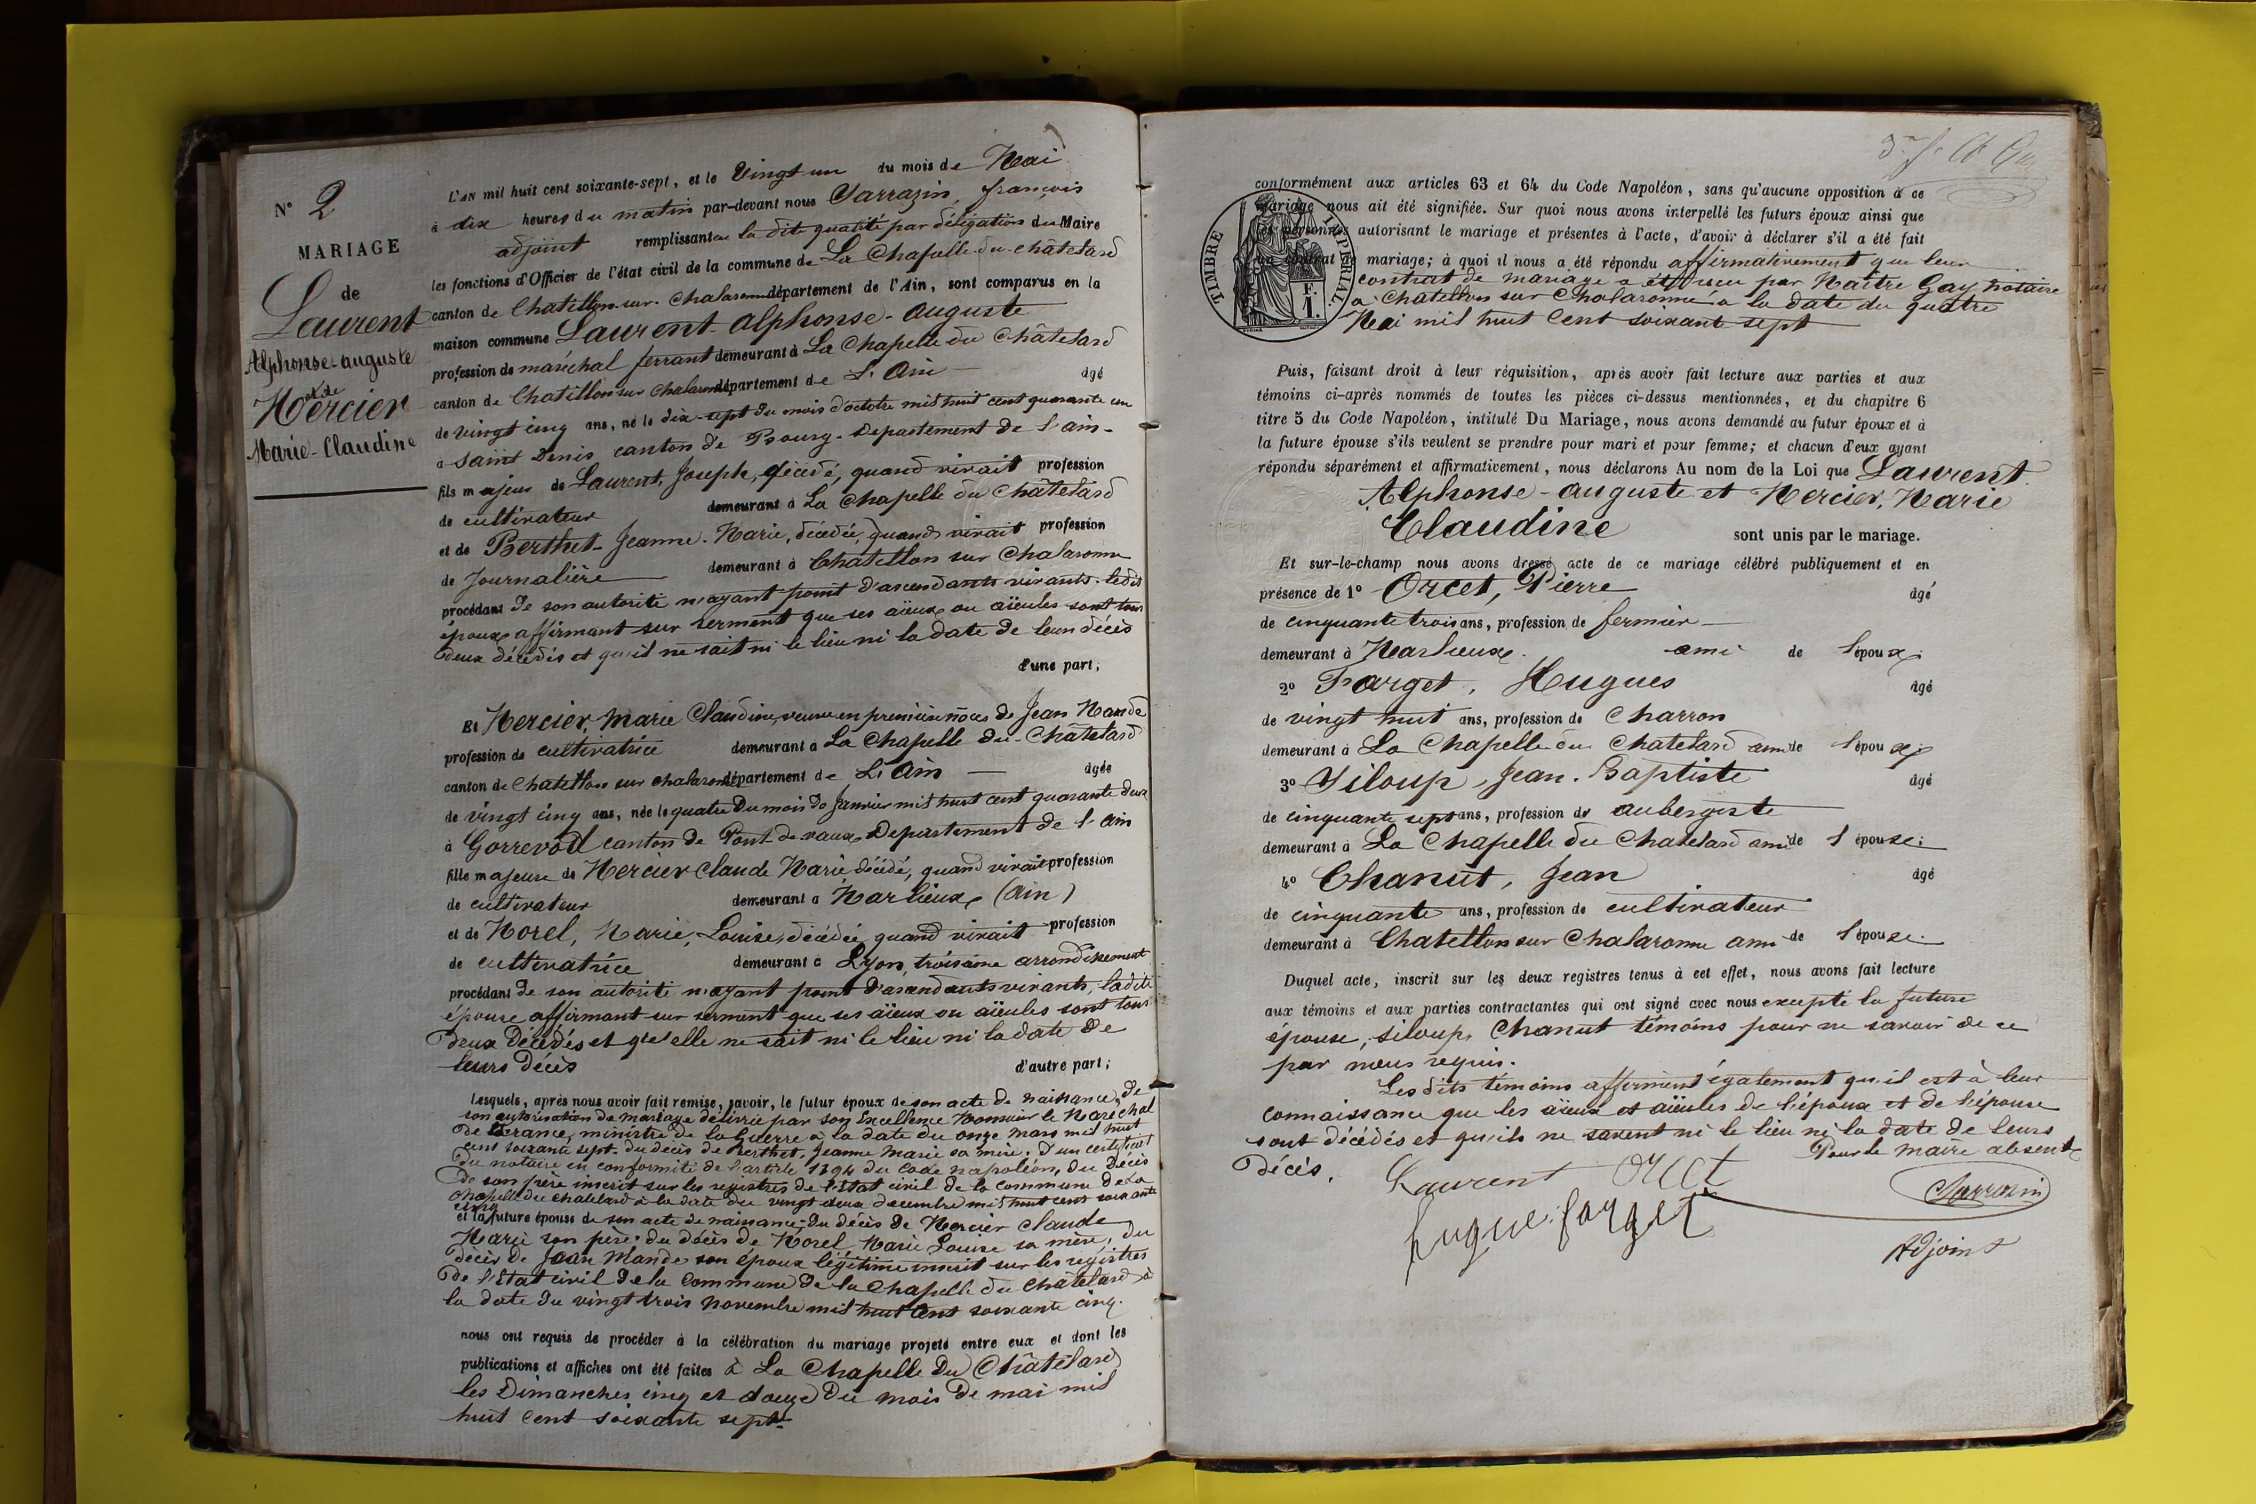 N° 2
MARIAGE
de
Laurent
Alphonse-auguste
et de
Mercier
Marie-Claudine
L'AN mil huit cent soixante-sept, et le Vingt un du mois de Mai
à dix heures du matin par-devant nous Sarrazin, françois
adjoint remplissant en la dite qualité par délégation du Maire
les fonctions d'Officier de l'état civil de la commune de La Chapelle-du-châtelard
canton de Chatillon-sur-Chalaronne département de l'Ain, sont comparus en la
maison commune Laurent-alphonse-auguste
profession de maréchal ferrant demeurant à La Chapelle du Châtelard
canton de Chatillon sur Chalaronne département de L'Ain âgé
de vingt cinq ans, né le dix-sept du mois d'octobre mil huit cent quarante un
à Saint Denis canton de Bourg-Departement de l'ain-
fils majeur de Laurent, Joseph, décédé, quand vivait profession
de cultivateur demeurant à La Chapelle du Châtelard
et de Berthet-Jeanne-Marie, décédée, quand vivait profession
de Journalière demeurant à Chatillon sur Chalaronne
procédant de son autorité n'ayant point d'ascendants vivants, ledit
époux affirmant sur serment que ses aïeux ou aïeules sont tous
deux décédés et qu'il ne sait ni le lieu ni la date de leur décès
d'une part;
Et Mercier, Marie Claudine, veuve en premières nôces de Jean Mande
profession de cultivatrice demeurant à La Chapelle du-Châtelard
canton de Chatillon sur chalaronne département de L'Ain âgée
de vingt cinq ans, née le quatre du mois de Janvier mil huit cent quarante deux
à Gorrevod canton de Pont de vaux Departement de l'ain
fille majeure de Mercier Claude Marie décédé, quand vivait profession
de cultivateur demeurant à Marlieux (ain)
et de Morel, Marie, Louise, décédée, quand vivait profession
de cultivatrice demeurant à Lyon, troisième arrondissement
procédant de son autorité n'ayant point d'ascendants vivants, ladite
épouse affirmant sur serment que ses aïeux ou aïeules sont tous
deux décédés et qu'elle ne sait ni le lieu ni la date de
leurs décès d'autre part;
Lesquels, après nous avoir fait remise, savoir, le futur époux de son acte de naissance, de
son autorisation de mariage délivrée par son Excellence Monsieur le Maréchal
de France, ministre de la Guerre à la date du onze Mars mil huit
cent soixante sept. du décès de Berthet, Jeanne Marie sa mère, d'un certificat
du notaire en conformité de l'article 1394 du Code napoléon, du décès
de son père inscrit sur les registres de l'Etat civil de la commune de La
Chapelle du Chatelard à la date du vingt deux decembre mil huit cent soixante
cinq
et la future épouse de son acte de naissance, du décès de Mercier Claude
Marie son père, du décès de Morel Marie Louise sa mère, du
décès de Jean Mande son époux légitime inscrit sur les registres
de l'Etat civil de la Commune de la Chapelle du Châtelard à
la date du vingt trois novembre mil huit cent soixante cinq.
nous ont requis de procéder à la célébration du mariage projeté entre eux et dont les
publications et affiches ont été faites à La Chapelle du Châtelard
les Dimanches cinq et douze du mois de mai mil
huit cent soixante sept-
conformément aux articles 63 et 64 du Code Napoléon, sans qu'aucune opposition à ce
mariage nous ait été signifiée. Sur quoi nous avons interpellé les futurs époux ainsi que
les personnes autorisant le mariage et présentes à l'acte, d'avoir à déclarer s'il a été fait
un contrat de mariage; à quoi il nous a été répondu affirmativement que leur
contrat de mariage a été reçu par Maître Gay notaire
à Chatillon sur Chalaronne à la date du quatre
Mai mil huit Cent soixante sept
TIMBRE IMPERIAL
F.
1.
Puis, faisant droit à leur réquisition, après avoir fait lecture aux parties et aux
témoins ci-après nommés de toutes les pièces ci-dessus mentionnées, et du chapitre 6
titre 5 du Code Napoléon, intitulé Du Mariage, nous avons demandé au futur époux et à
la future épouse s'ils veulent se prendre pour mari et pour femme; et chacun d'eux ayant
répondu séparément et affirmativement, nous déclarons Au nom de la Loi que Laurent
Alphonse-auguste et Mercier, Marie
Claudine sont unis par le mariage.
Et sur-le-champ nous avons dressé acte de ce mariage célébré publiquement et en
présence de 1° Orcet, Pierre âgé
de cinquante trois ans, profession de fermier
demeurant à Marlieux ami de l'époux;
2° Farget, Hugues âgé
de vingt huit ans, profession de Charron
demeurant à La Chapelle du Chatelard ami de l'époux;
3° Siloup, Jean-Baptiste âgé
de cinquante sept ans, profession de aubergiste
demeurant à La Chapelle du Chatelard ami de l'épouse;
4° Chanut, Jean âgé
de cinquante ans, profession de cultivateur
demeurant à Chatillon sur Chalaronne ami de l'épouse.
Duquel acte, inscrit sur les deux registres tenus à cet effet, nous avons fait lecture
aux témoins et aux parties contractantes qui ont signé avec nous excepté la future
épouse, siloup, Chanut témoins pour ne savoir de ce
par nous requis.
Les dits témoins affirment également qu'il est à leur
connaissance que les aïeux et aïeules de l'époux et de l'épouse
sont décédés et qu'ils ne savent ni le lieu ni la date de leurs
décès. Pour le maire absent
Laurent Orcet Sarrazin
hugue farget
Adjoint